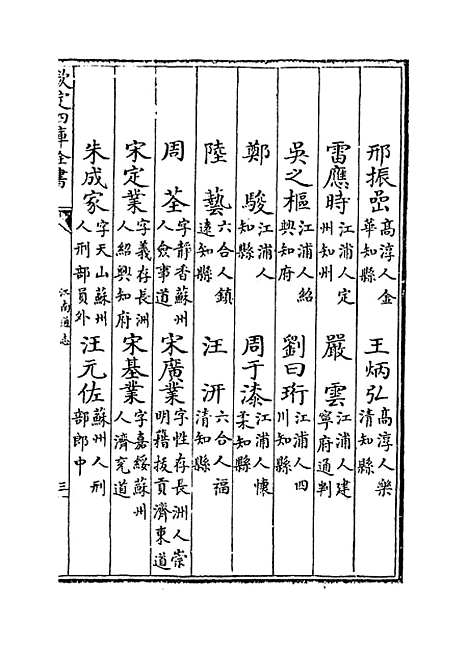 邢振㽞高淳人金華知縣　王炳弘高淳人樂清知縣
雷應時江浦人定州知州　嚴雲江浦人建寧府通判
吳之樞江浦人紹興知府　劉曰珩江浦人四川知縣
鄭駿江浦人知縣　周于漆江浦人懷柔知縣
陸藝六合人鎮遠知縣　汪汧六合人福清知縣
周荃字靜香蘇州人僉事道　宋廣業字性存長洲人崇明籍拔貢濟東道
宋定業字義存長洲人紹興知府　宋基業字嘉綏蘇州人濟兖道
朱成家字天山蘇州人刑部員外　汪元佐蘇州人刑部郎中
欽定四庫全書　江南通志　三